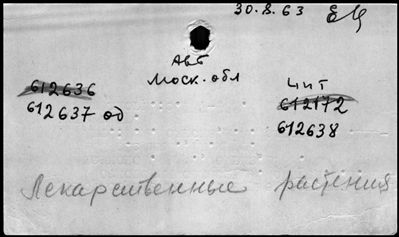 30.8.63 ЕЦ
АВБ
Моск. обл
612636
612637 од
ЧИТ
612172
612638
Лекарственные растения